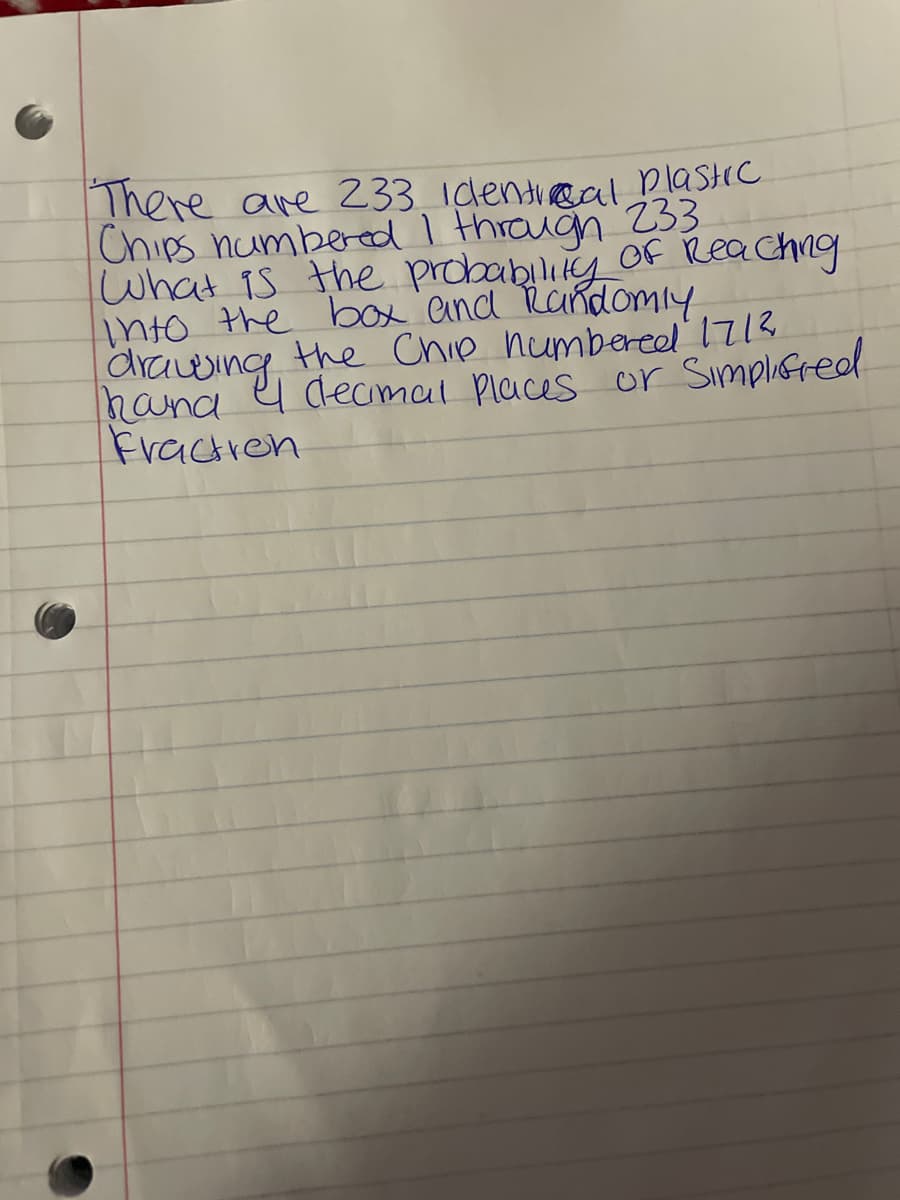 There are 233 identical plastic
Chips numbered 1 through 233
What is the probability of Reaching
into the box and Randomly
drawing the Chip numbered 171?
hand 4 decimal Places or Simplified
Fraction